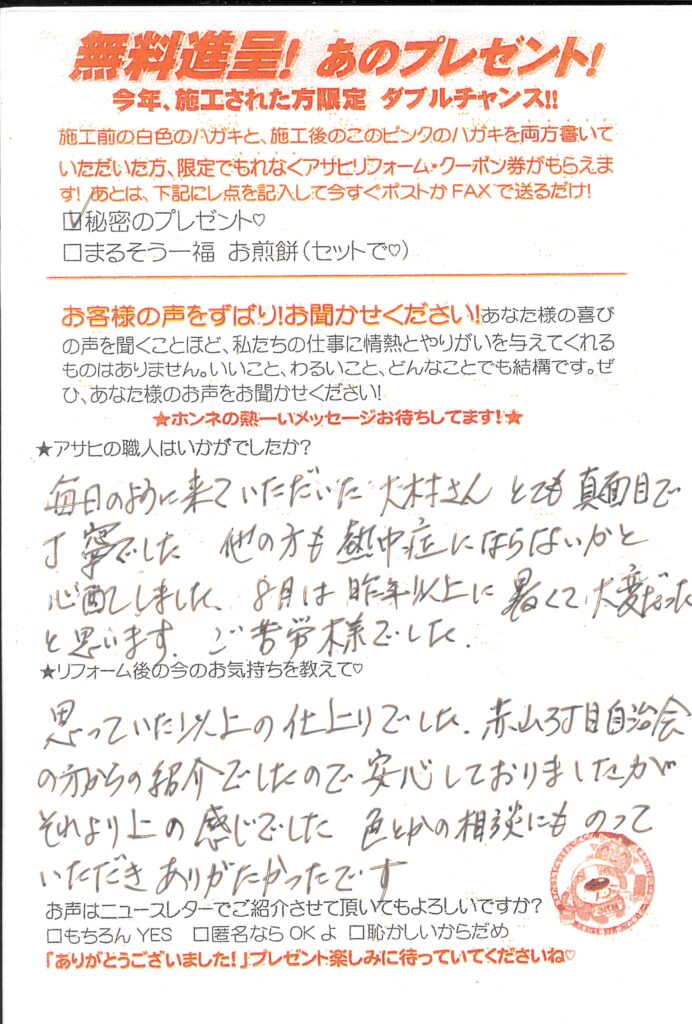 無料進呈! あのプレゼント!
今年、施工された方限定 ダブルチャンス!!
施工前の白色のハガキと、施工後のこのピンクのハガキを両方書いて
いただいた方、限定でもれなくアサヒリフォーム・クーポン券がもらえま
す! あとは、下記にレ点を記入して今すぐポストかFAXで送るだけ!
☑秘密のプレゼント♡
□まるそう一福 お煎餅(セットで♡)
お客様の声をずばり!お聞かせください!あなた様の喜び
の声を聞くことほど、私たちの仕事に情熱とやりがいを与えてくれる
ものはありません。いいこと、わるいこと、どんなことでも結構です。ぜ
ひ、あなた様のお声をお聞かせください!
★ホンネの熱ーいメッセージお待ちしてます!★
★アサヒの職人はいかがでしたか?
毎日のように来ていただいた 大村さん とても真面目で
丁寧でした 他の方も熱中症にはならないかと
心配しました、8月は昨年以上に暑くて大変だった
と思います。ご苦労様でした。
★リフォーム後の今のお気持ちを教えて♡
思っていた以上の仕上りでした。赤山3丁目自治会
の方からの紹介でしたので安心しておりましたが
それより上の感じでした 色とかの相談にものって
いただきありがたかったです
お声はニュースレターでご紹介させて頂いてもよろしいですか?
□もちろんYES □匿名ならOKよ □恥かしいからだめ
「ありがとうございました!」プレゼント楽しみに待っていてくださいね♡